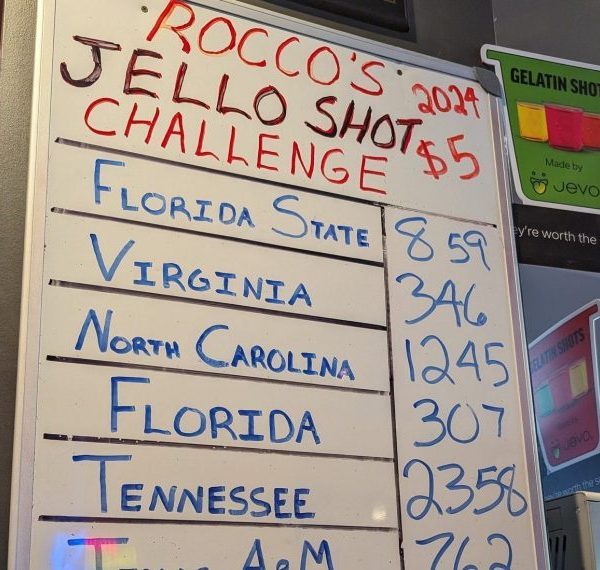 ROCCO'S
JELLO SHOT 2024
CHALLENGE $5
FLORIDA STATE 859
VIRGINIA 346
NORTH CAROLINA 1245
FLORIDA 307
TENNESSEE 2358
TEXAS A&M 762
GELATIN SHOT
Made by
Jevo
ey're worth the
ELATIN SHOTS
Jevo.